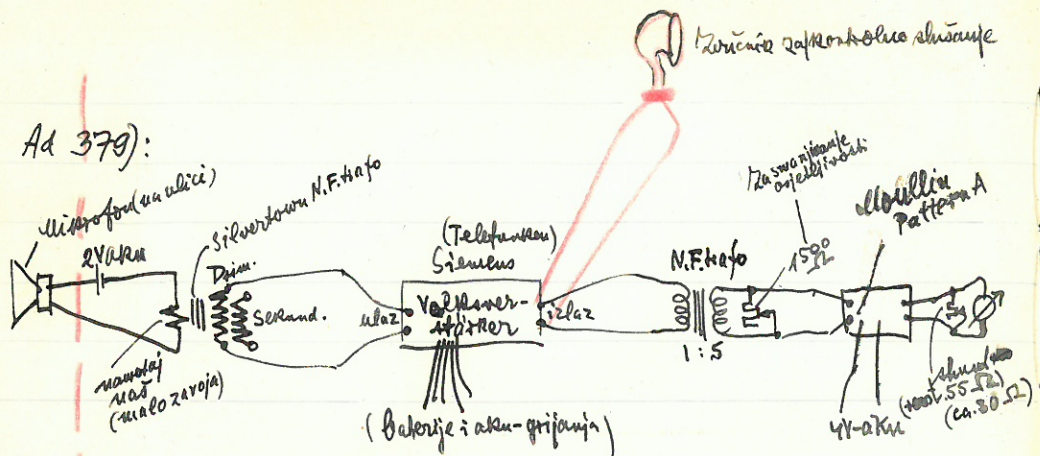 Zvučnik za kontrolno slušanje
Ad 379):
Mikrofon (na ulici)
2V aku
Silvertown N.F. trafo
Prim.
Sekund.
namotaj
naš
(malo zavoja)
(Telefunken)
Siemens
ulaz
Volksver-
stärker
izlaz
(baterije i aku-grijanja)
N.F. trafo
1:5
Za smanjivanje
osjetljivosti
1500
Ω
Moullin
Pattern A
4V-aku
shunt
55 Ω
(ca. 80 Ω)